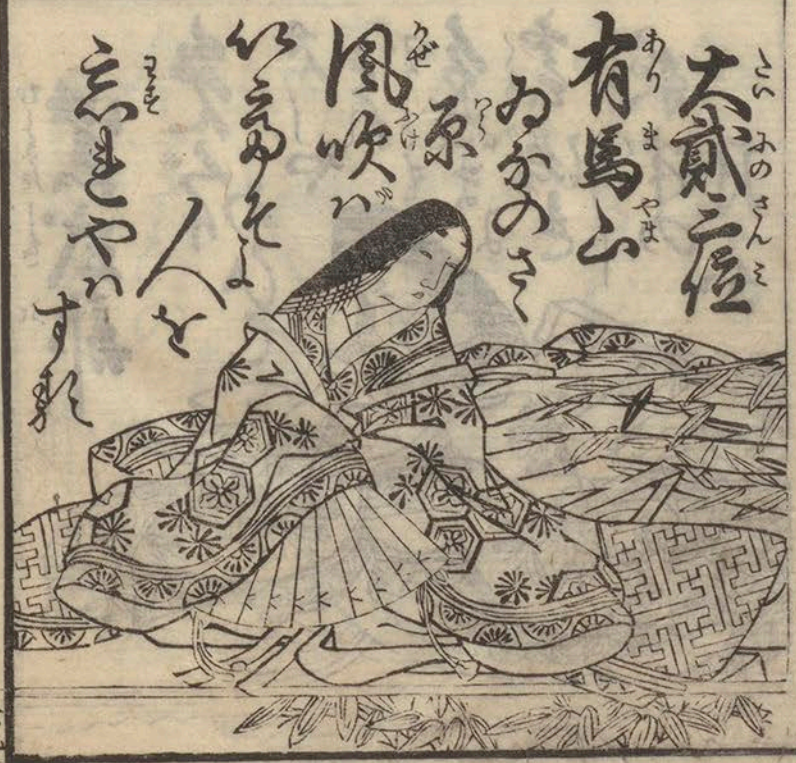 大貳三位
有馬山
ゐなのさゝ
原
風吹ば
いでそよ
人を
忘れやハ
する